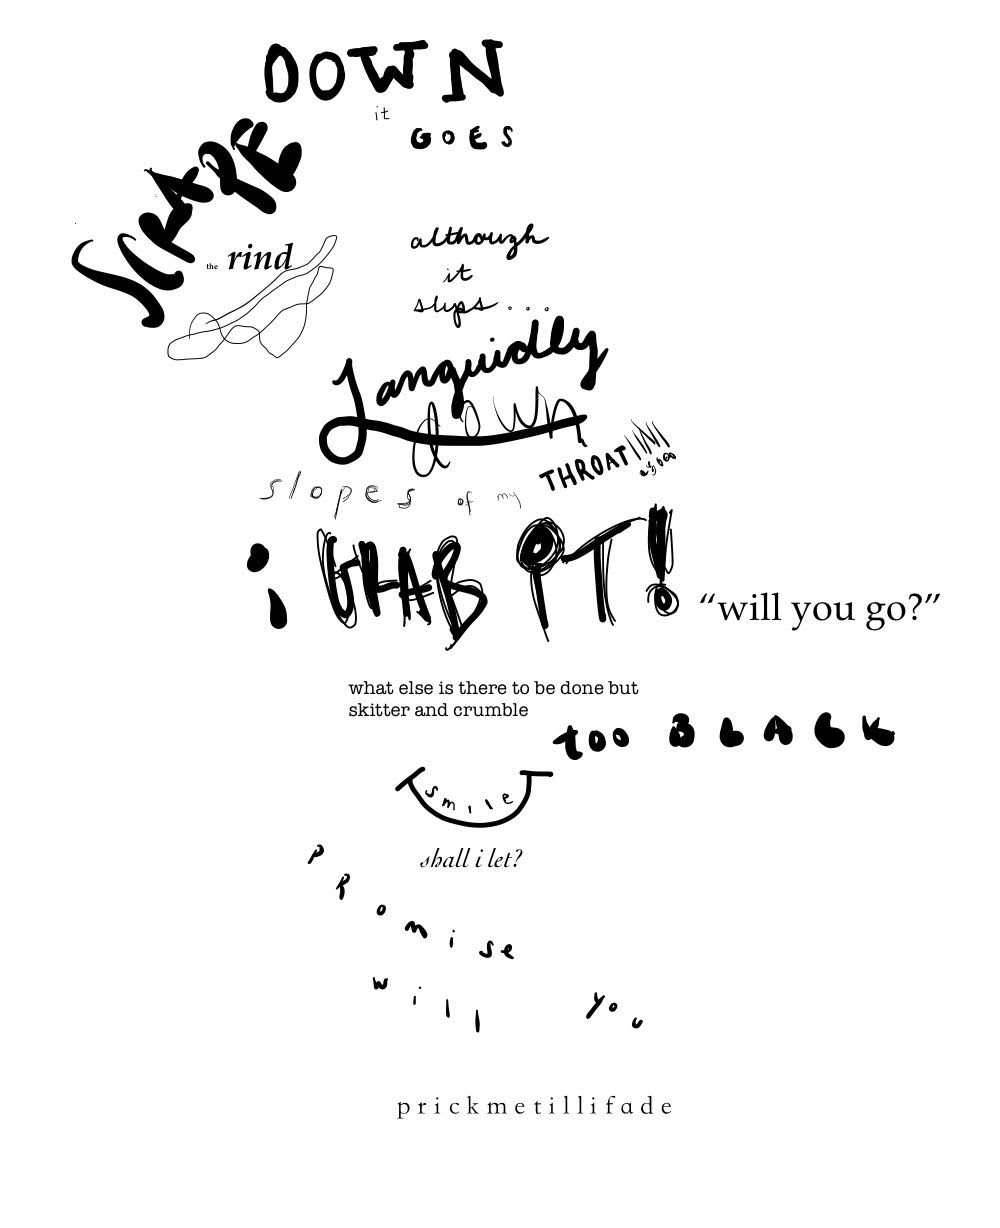 DOWN
it
GOES
SCRAPE
the rind
although
it
slips...
Languidly
down
slopes of my THROAT
i GRAB IT!
“will you go?”
what else is there to be done but
skitter and crumble
too BLACK
smile
shall i let?
promise
will you
prickmetillifade